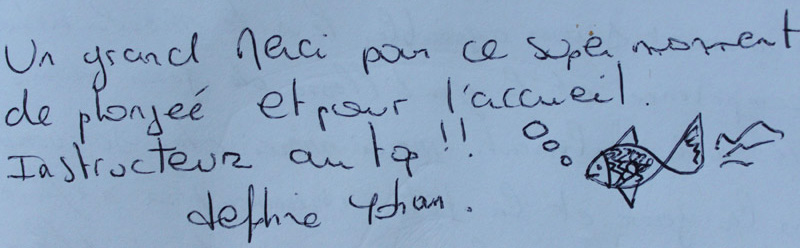 Un grand Merci pour ce super moment
de plongeé et pour l'accueil.
Instructeur au top !!